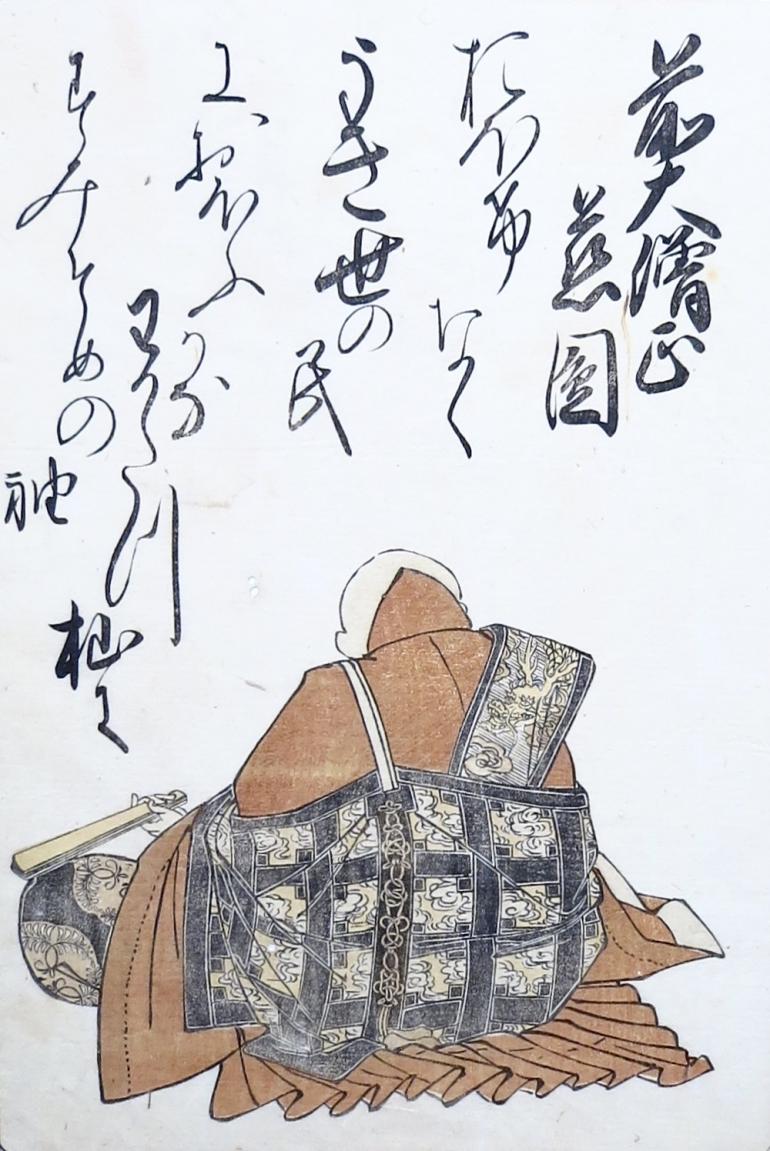 前大僧正
慈圓
おほけ
なく
うき世の
民
におほふ
かな
わかたつ
杣に
すみそめの
袖